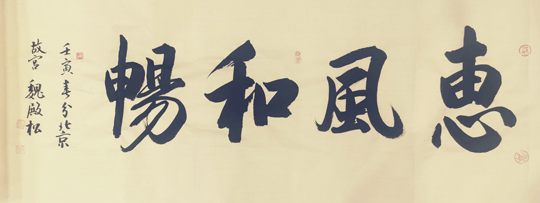 惠風和暢
壬寅春分北京
故宮 魏殿松